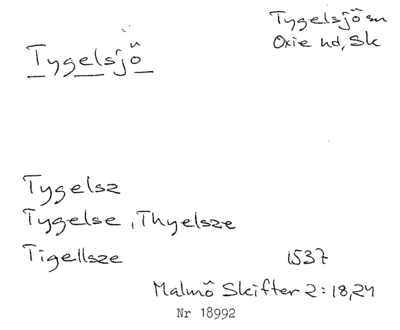 Tygelsjö sn
Oxie hd, Sk
Tygelsjö
Tygelsz
Tygelse, Thyelsze
Tigellsze 1537
Malmö Skifter 2:18,24
Nr 18992